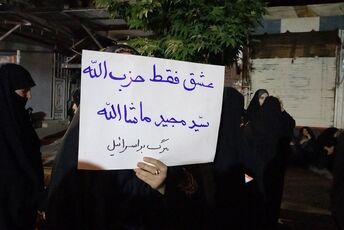 عشق فقط حزب الله
سید مجید ماشاالله
مرگ بر اسرائیل